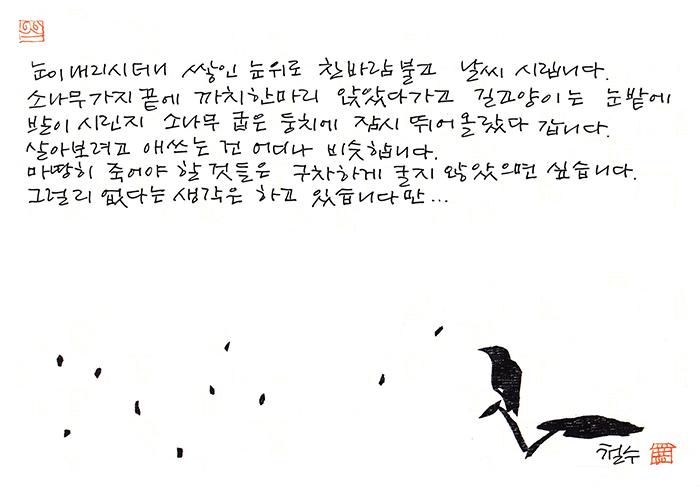 눈이 내리시더니 쌓인 눈위로 찬바람 불고 날씨 시립니다.
소나무가지 끝에 까치 한마리 앉았다 가고 길고양이는 눈밭에
발이 시린지 소나무 굽은 둥치에 잠시 뛰어 올랐다 갑니다.
살아보려고 애쓰는 건 어디나 비슷합니다.
마땅히 죽어야 할 것들은 구차하게 굴지 않았으면 싶습니다.
그럴리 없다는 생각은 하고 있습니다만...
철수